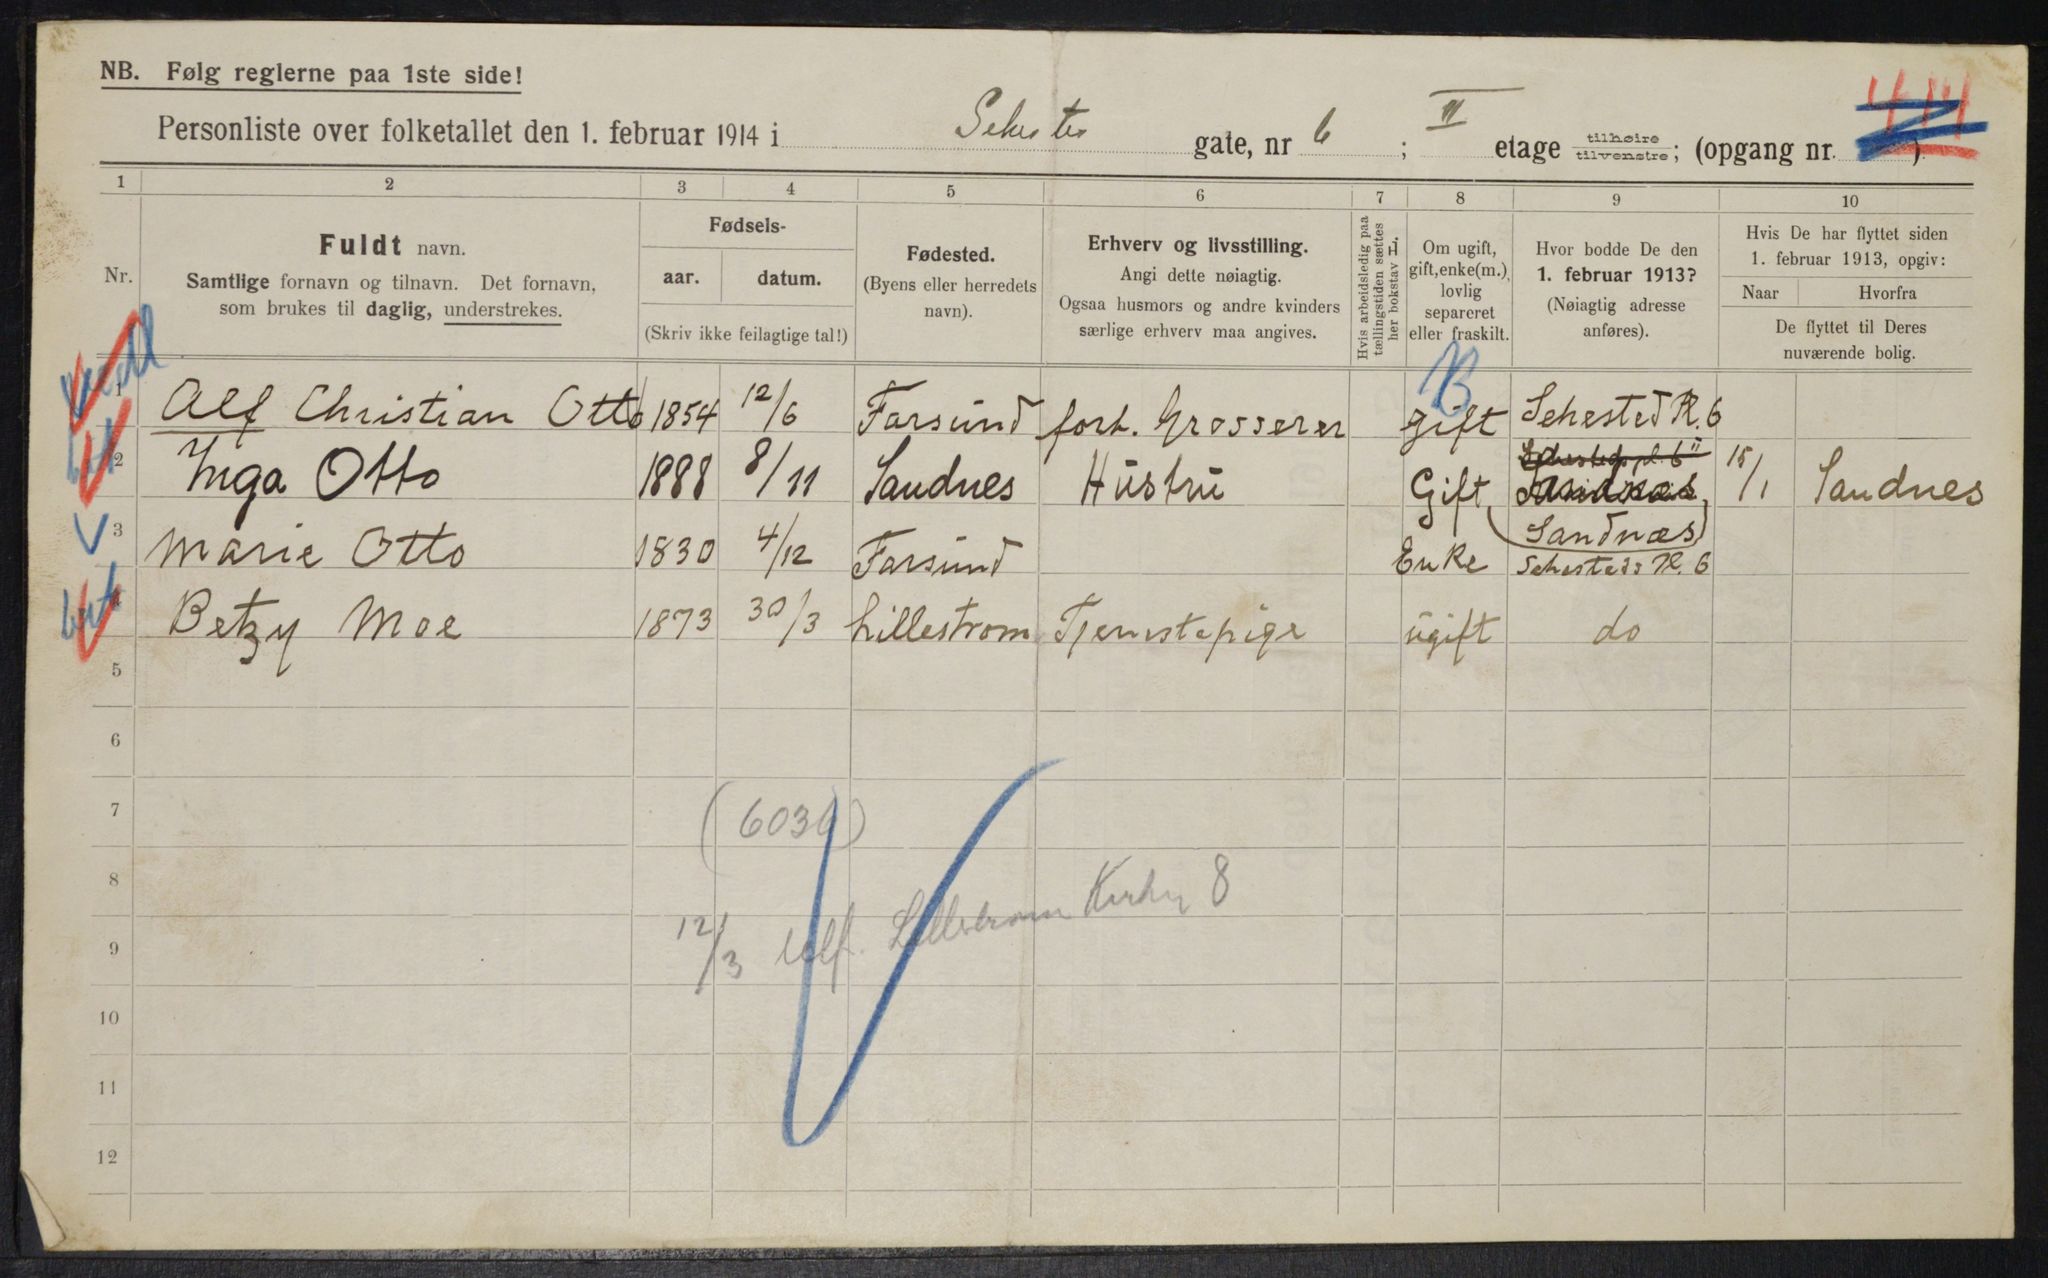 NB. Følg reglerne paa 1ste side!
Personliste over folketallet den 1. februar 1914 i Sehesteds gate, nr 6 ; II etage tilhøire tilvenstre; (opgang nr. )
1 2 3 4 5 6 7 8 9 10
Nr.
Fuldt navn.
Samtlige fornavn og tilnavn. Det fornavn,
som brukes til daglig, understrekes.
Fødsels-
aar. datum.
(Skriv ikke feilagtige tal!)
Fødested.
(Byens eller herredets
navn).
Erhverv og livsstilling.
Angi dette nøiagtig.
Ogsaa husmors og andre kvinders
særlige erhverv maa angives.
Hvis arbeidsledig paa
tællingstiden sættes
her bokstav H.
Om ugift,
gift, enke(m.),
lovlig
separeret
eller fraskilt.
Hvor bodde De den
1. februar 1913?
(Nøiagtig adresse
anføres).
Hvis De har flyttet siden
1. februar 1913, opgiv:
Naar Hvorfra
De flyttet til Deres
nuværende bolig.
B
1 Alf Christian Otto 1854 12/6 Farsund forh. Grosserer gift Sehested Pl. 6
2 Inga Otto 1888 8/11 Sandnes Hustru Gift Sandnæs 15/1 Sandnes
(Sandnæs)
3 Marie Otto 1830 4/12 Farsund Enke Sehesteds Pl. 6
4 Betzy Moe 1873 30/3 Lillestrom Tjenestepige ugift do
5
6
7 (6036)
8
9 12/3 Lillestrøm 8
10
11
12